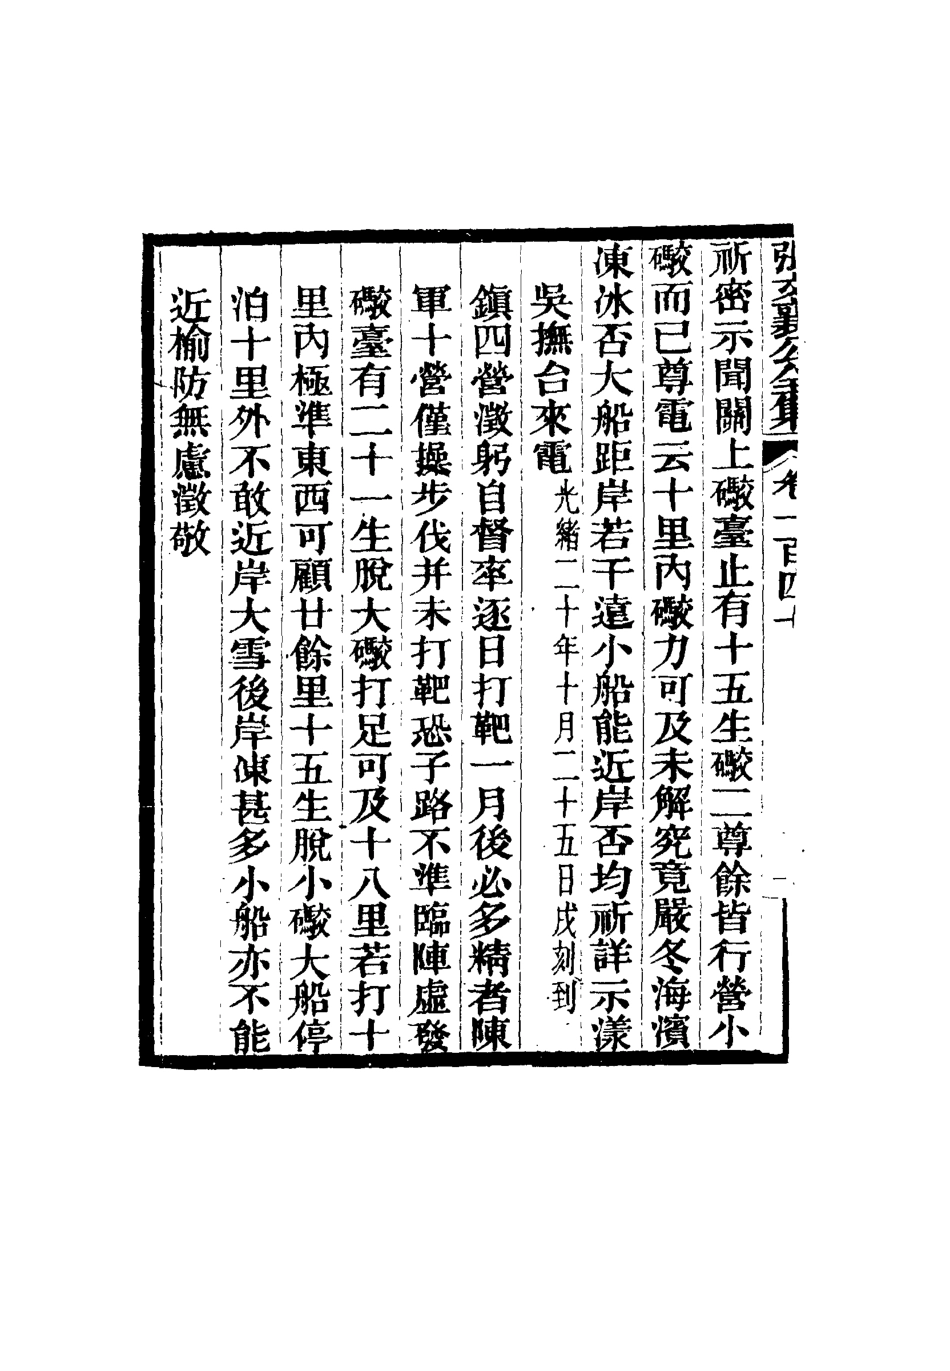 張文襄公全集 卷一百四十
祈密示聞關上礮臺止有十五生礮二尊餘皆行營小
礮而已尊電云十里內礮力可及未解究竟嚴冬海濱
凍冰否大船距岸若干遠小船能近岸否均祈詳示漾
吳撫台來電光緒二十年十月二十五日戌刻到
鎮四營澂躬自督率逐日打靶一月後必多精者陳
軍十營僅操步伐并未打靶恐子路不準臨陣虛發
礮臺有二十一生脫大礮打足可及十八里若打十
里內極準東西可顧廿餘里十五生脫小礮大船停
泊十里外不敢近岸大雪後岸凍甚多小船亦不能
近榆防無慮澂敬